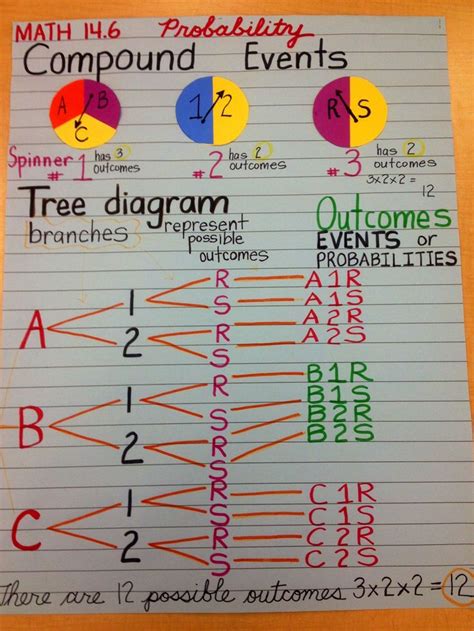 MATH 14.6 Probability
Compound Events
A B C
1 2
R S
Spinner # 1 has 3 outcomes
# 2 has 2 outcomes
# 3 has 2 outcomes
3x2x2 = 12
Tree diagram
branches
represent possible outcomes
Outcomes
EVENTS or
PROBABILITIES
A
1
R
A1R
S
A1S
2
R
A2R
S
A2S
B
1
R
B1R
S
B1S
2
R
B2R
S
B2S
C
1
R
C1R
S
C1S
2
R
C2R
S
C2S
There are 12 possible outcomes 3x2x2=12